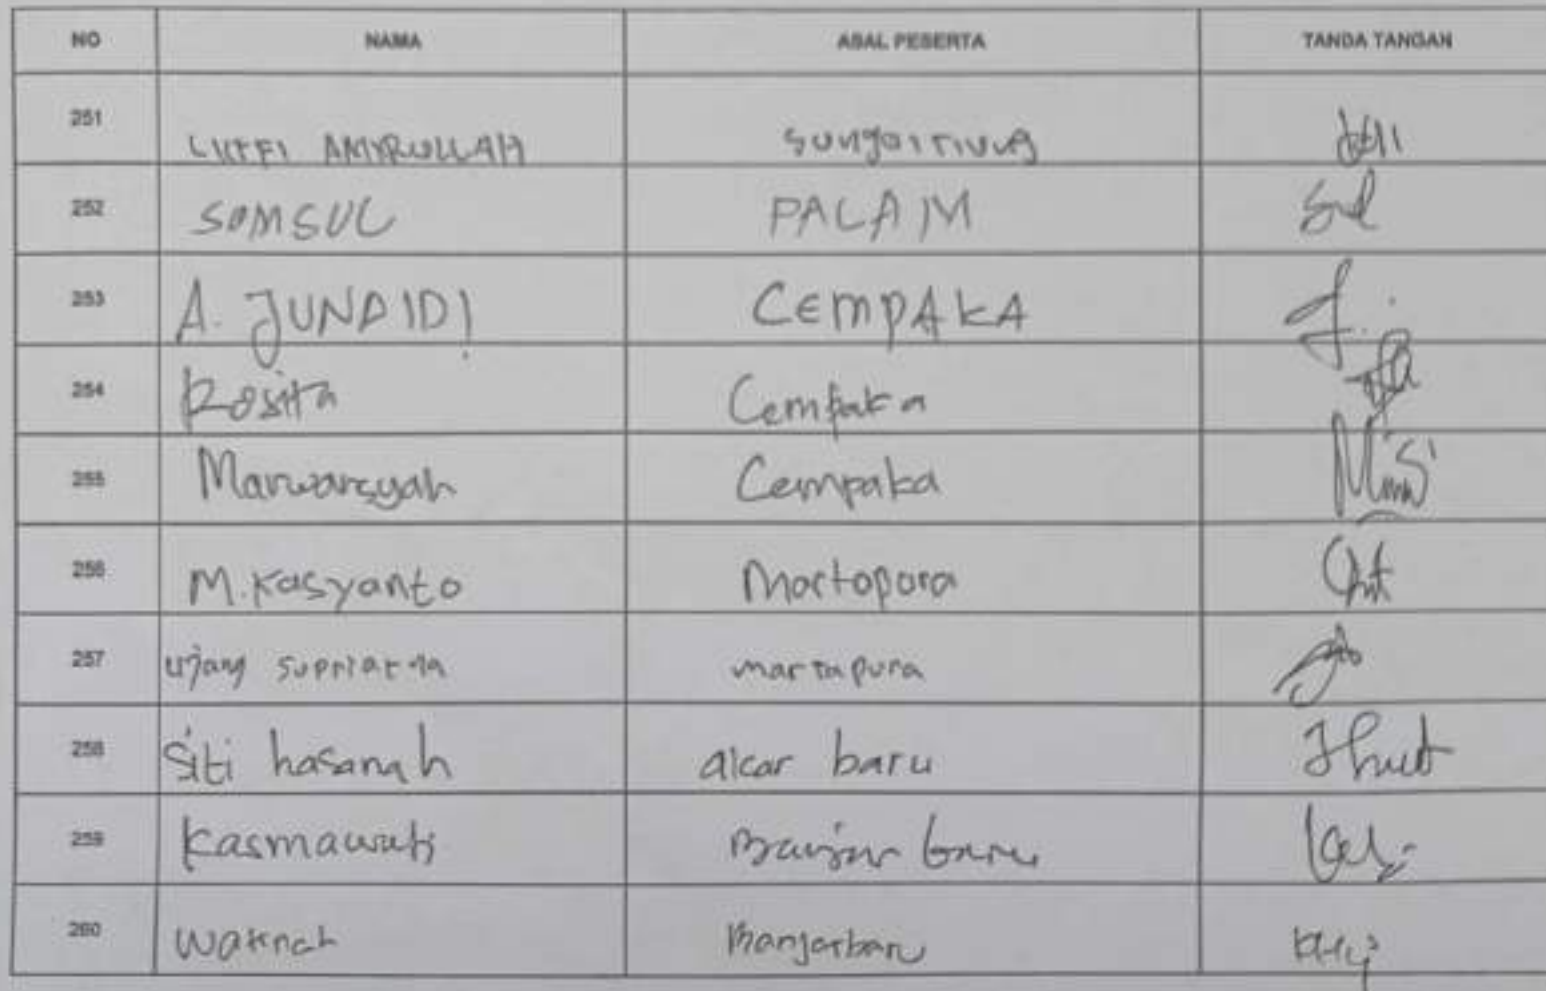 NO NAMA ASAL PESERTA TANDA TANGAN
251 LUTFI AMYRULLAH Sungai Tiung
252 SAMSUL PALAM
253 A. JUNAIDI CEMPAKA
254 Rosita Cempaka
255 Marwansyah Cempaka
256 M. Kasyanto Martapura
257 ujang supriatna martapura
258 Siti hasanah alcar baru
259 Kasmawati Banjar baru
260 Banjarbaru